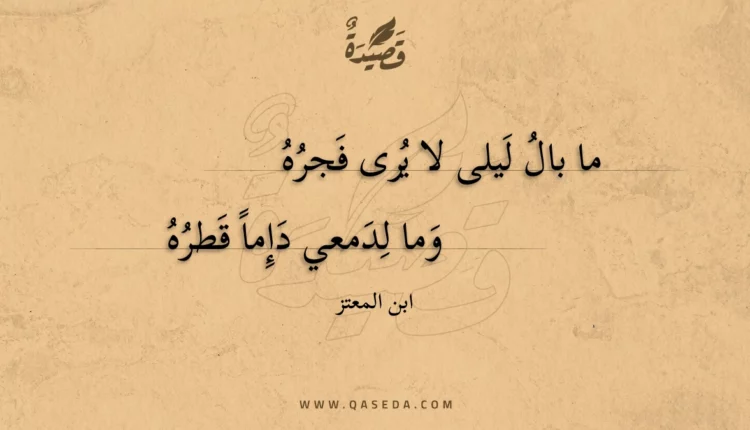 قَصِيدَةٌ
ما بالُ لَيلى لا يُرى فَجرُهُ
وَما لِدَمعي دَإِماً قَطرُهُ
ابن المعتز
WWW.QASEDA.COM